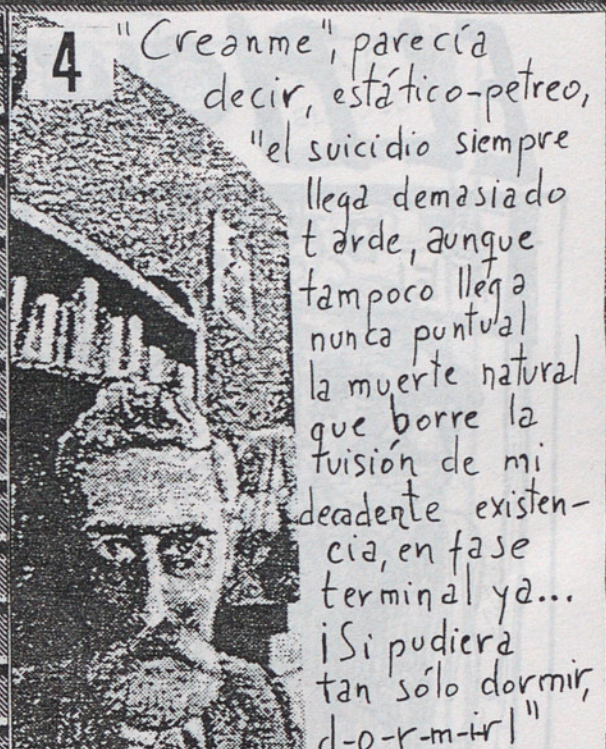 4
"Creanme", parecía
decir, estático-petreo,
"el suicidio siempre
llega demasiado
tarde, aunque
tampoco llega
nunca puntual
la muerte natural
que borre la
tuisión de mi
decadente existen-
cia, en fase
terminal ya...
¡Si pudiera
tan sólo dormir,
d-o-r-m-ir!"